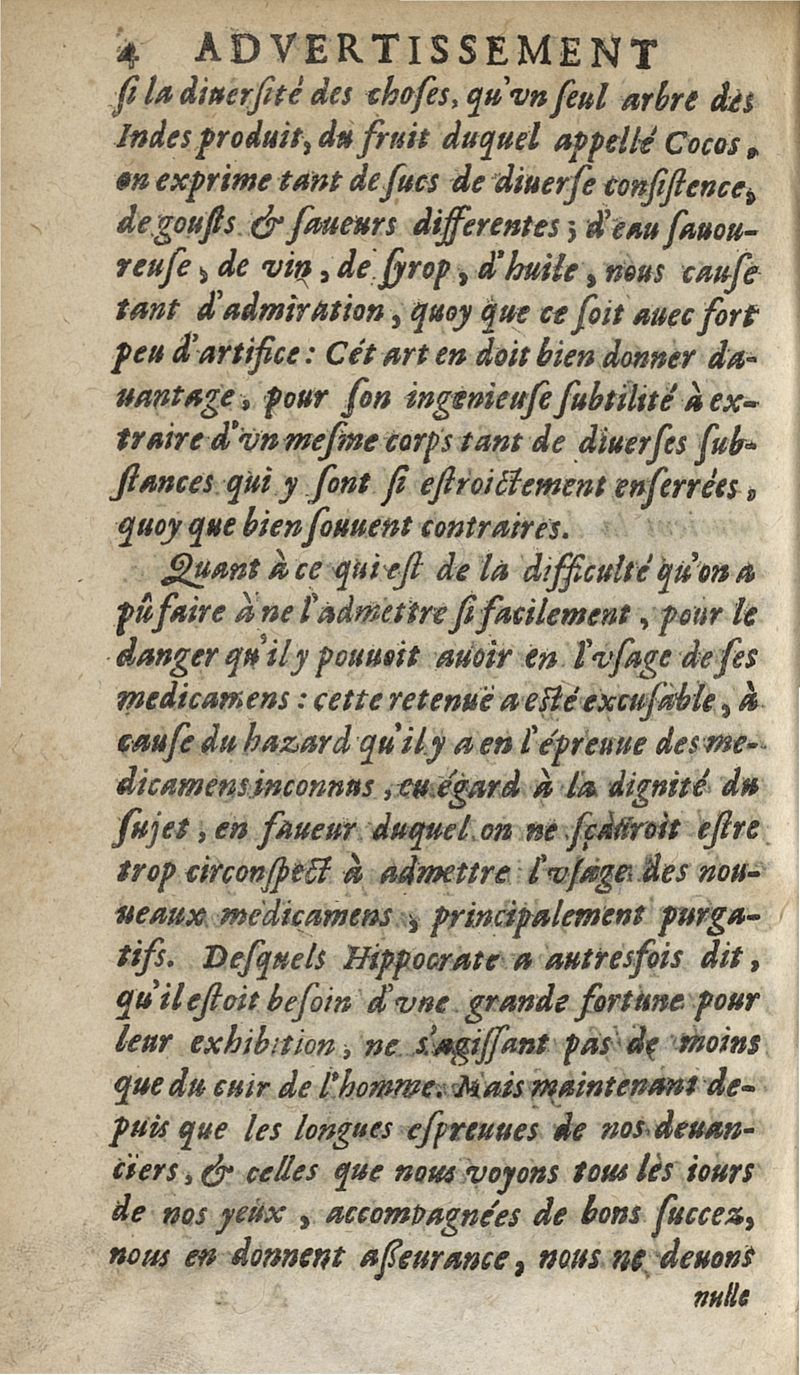 4 ADVERTISSEMENT
ſi la diuerſité des choſes, qu'vn ſeul arbre des
Indes produit, du fruit duquel appellé Cocos,
on exprime tant de ſucs de diuerſe conſiſtence,
de gouſts & ſaueurs differentes; d'eau ſauou-
reuſe, de vin, de ſyrop, d'huile, nous cauſe
tant d'admiration, quoy que ce ſoit auec fort
peu d'artifice: Cét art en doit bien donner da-
uantage, pour ſon ingenieuſe ſubtilité à ex-
traire d'vn meſme corps tant de diuerſes ſub-
ſtances qui y ſont ſi eſtroictement enſerrées,
quoy que bien ſouuent contraires.
Quant à ce qui eſt de la difficulté qu'on a
pû faire à ne l'admettre ſi facilement, pour le
danger qu'il y pouuoit auoir en l'vſage de ſes
medicamens: cette retenuë a eſté excuſable, à
cauſe du hazard qu'il y a en l'épreuue des me-
dicamens inconnus, eu égard à la dignité du
ſujet, en faueur duquel on ne ſçauroit eſtre
trop circonſpect à admettre l'vſage des nou-
ueaux medicamens, principalement purga-
tifs. Deſquels Hippocrate a autresfois dit,
qu'il eſtoit beſoin d'vne grande fortune pour
leur exhibition, ne s'agiſſant pas de moins
que du cuir de l'homme. Mais maintenant de-
puis que les longues eſpreuues de nos deuan-
ciers, & celles que nous voyons tous les iours
de nos yeux, accompagnées de bons ſuccez,
nous en donnent aſſeurance, nous ne deuons
nulle